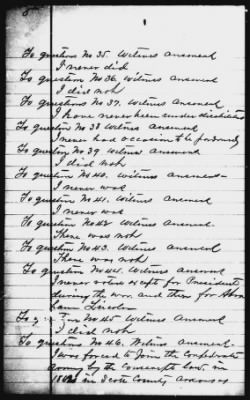 To question No 35. Witness answered
I never did
To question No 36. Witness answered
I did not
To questions No 37. Witness answered
I have never been under disabilities
To question No 38 Witness answered
I never had occasion to be
To question No 39 Witness answered
I did not
To question No 40. Witness answered
I never was
To question No 41. Witness answered
I never was
To question No 42 Witness answered.
There was not
To question No 43. Witness answered
There was not
To question No 44. Witness answered
I never voted except for President
during the war. and then for Abra
Lincoln
To No 45 Witness Answered
I did not
To question No 46. Witness answered.
I was forced to Join the Confederate
Army by the Conscript law. in
in Scott County Arkansas